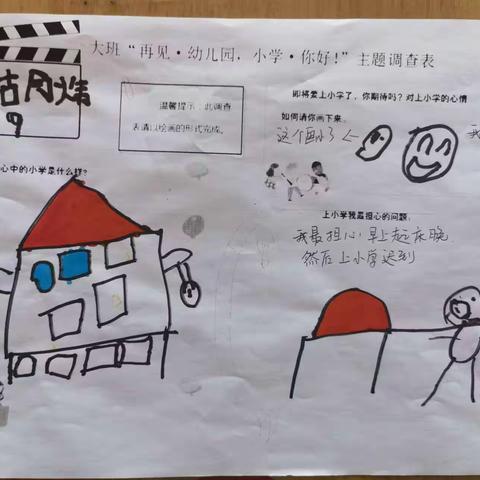 大班“再见·幼儿园，小学·你好！”主题调查表
胡炜
9
温馨提示：此调查
表请以绘画的形式完成。
即将要上小学了，你期待吗？对上小学的心情
如何请你画下来。
这个画小了
我
心中的小学是什么样？
上小学我最担心的问题：
我最担心早上起床晚
然后上小学迟到